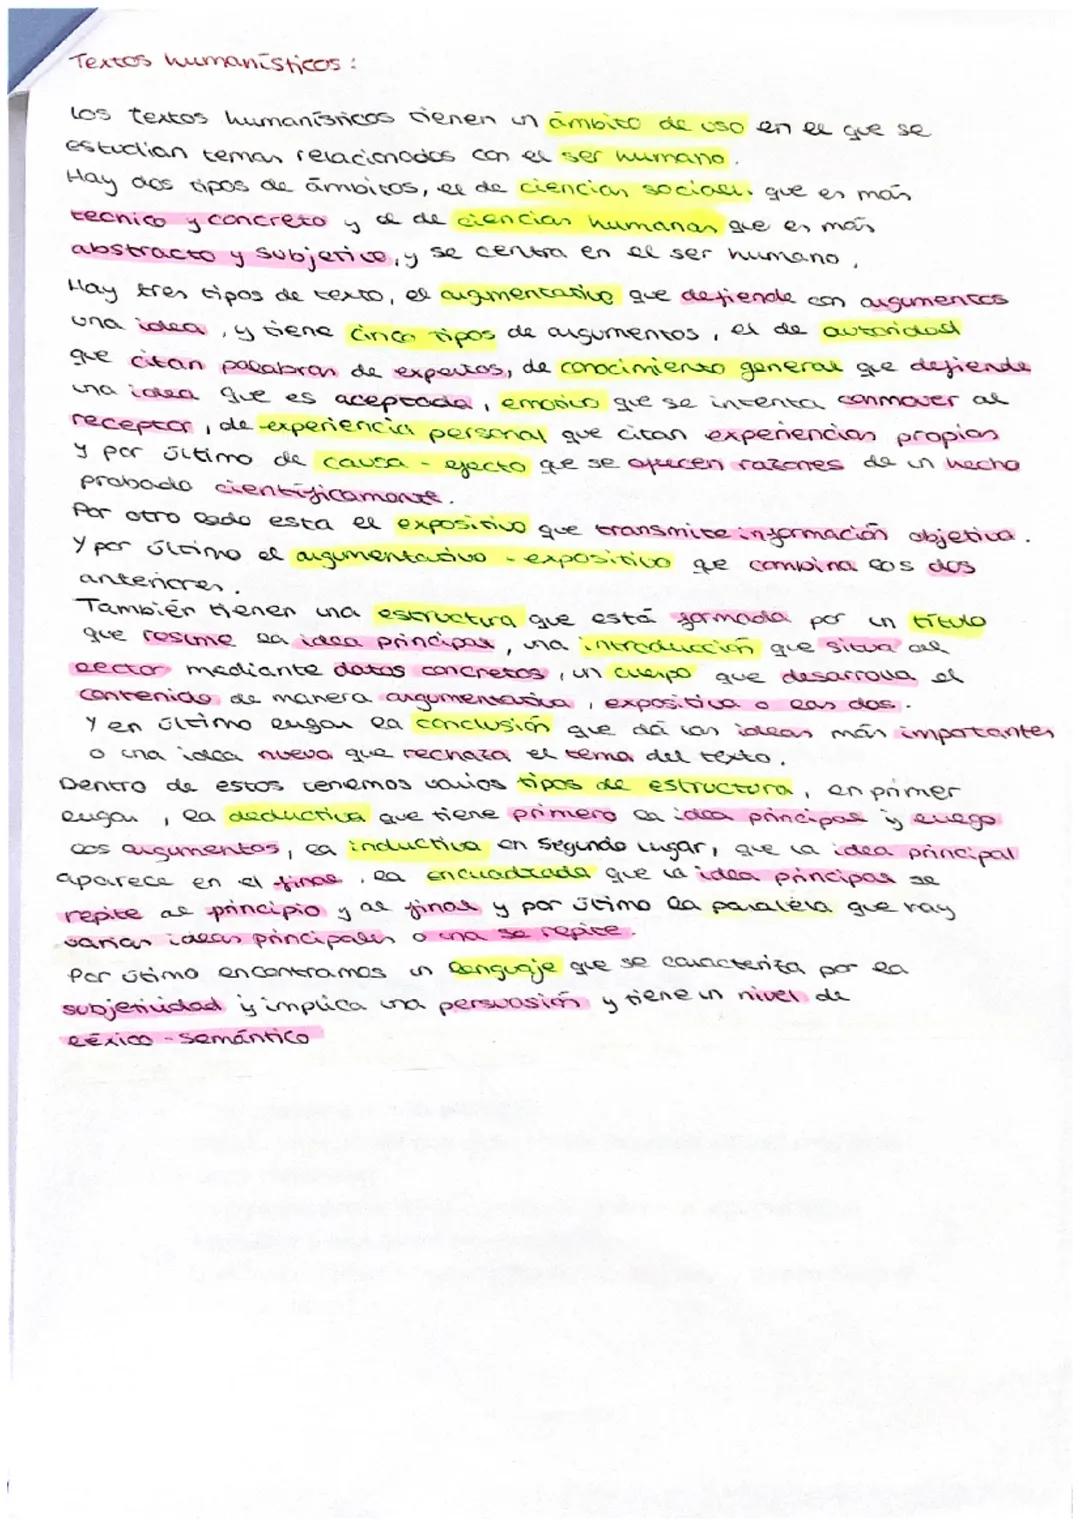 Textos humanísticos:
Los textos humanísticos tienen un ámbito de uso en el que se
estudian temas relacionados con el ser humano.
Hay dos tipos de ámbitos, el de ciencias sociales, que es más
tecnico y concreto y el de ciencias humanas que es más
abstracto y subjetivo, y se centra en el ser humano.
Hay tres tipos de texto, el argumentativo que defiende con argumentos
una idea, y tiene cinco tipos de argumentos, el de autoridad
que citan palabras de expertos, de conocimiento general que defiende
una idea que es aceptada, emotivo que se intenta conmover al
receptor, de experiencia personal que citan experiencias propias
y por último de causa - efecto que se ofrecen razones de un hecho
probado científicamente.
Por otro lado esta el expositivo que transmite información objetiva.
Y por último el argumentativo - expositivo que combina los dos
anteriores.
También tienen una estructura que está formada por un título
que resume la idea principal, una introducción que situa al
lector mediante datos concretos, un cuerpo que desarrolla el
contenido de manera argumentativa, expositiva o las dos.
Y en último lugar la conclusión que dá las ideas más importantes
o una idea nueva que rechaza el tema del texto.
Dentro de estos tenemos varios tipos de estructura, en primer
lugar, la deductiva que tiene primero la idea principal y luego
los argumentos, la inductiva en segundo lugar, que la idea principal
aparece en el final, la encuadrada que la idea principal se
repite al principio y al final y por último la paralela que hay
varias ideas principales o una se repite.
Por último encontramos un lenguaje que se caracteriza por la
subjetividad y implica una persuasión y tiene un nivel de
léxico - semántico